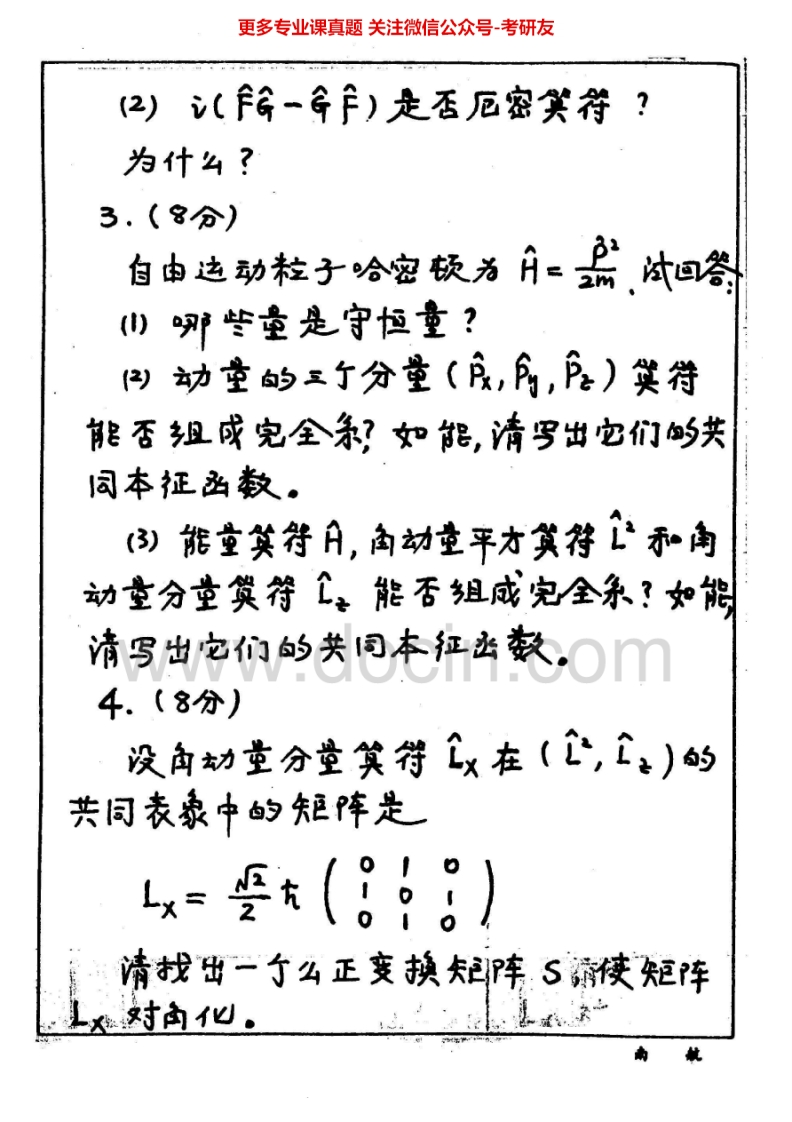 更多专业课真题 关注微信公众号-考研友
(2) i(F̂Ĝ-ĜF̂)是否厄密算符?
为什么?
3.(8分)
自由运动粒子哈密顿为 Ĥ = p̂²/2m . 试回答:
(1) 哪些量是守恒量?
(2) 动量的三个分量(p̂x, p̂y, p̂z)算符
能否组成完全系? 如能, 请写出它们的共
同本征函数。
(3) 能量算符Ĥ, 角动量平方算符L̂²和角
动量分量算符 L̂z 能否组成完全系? 如能,
请写出它们的共同本征函数。
www.docin.com
4.(8分)
设角动量分量算符 L̂x 在(L̂², L̂z)的
共同表象中的矩阵是
Lx = √2/2 ħ (0 1 0
1 0 1
0 1 0)
请找出一个么正变换矩阵 S, 使矩阵
Lx 对角化。
南 航